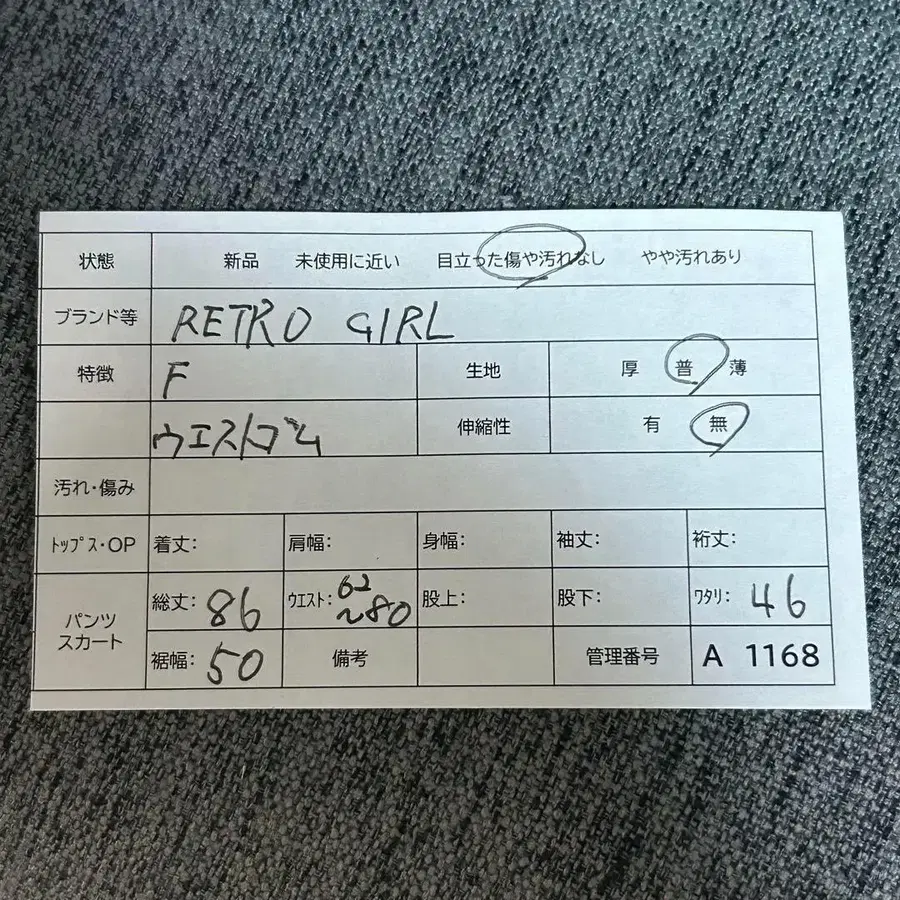 状態 新品 未使用に近い 目立った傷や汚れなし やや汚れあり
ブランド等 RETRO GIRL
特徴 F 生地 厚 普 薄
ウエストゴム 伸縮性 有 無
汚れ・傷み
トップス・OP 着丈: 肩幅: 身幅: 袖丈: 裄丈:
パンツ スカート 総丈: 86 ウエスト: 62~80 股上: 股下: ワタリ: 46
裾幅: 50 備考 管理番号 A 1168